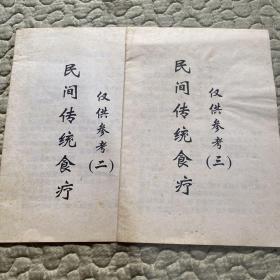 民间传统食疗
仅供参考(二)
民间传统食疗
仅供参考(三)